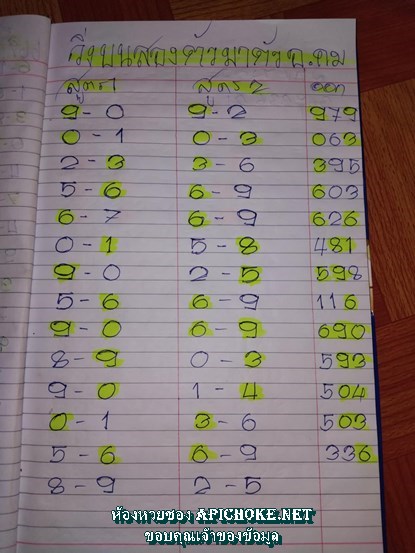 วิ่งบนสองตัวมาตัวจ.คม
สูตร1 สูตร2 ออก
9-0 9-2 979
0-1 0-3 063
2-3 3-6 395
5-6 6-9 603
6-7 6-9 626
0-1 5-8 481
9-0 2-5 598
5-6 6-9 116
9-0 6-9 690
8-9 0-3 593
9-0 1-4 504
0-1 3-6 503
5-6 6-9 336
8-9 2-5
ห้องหวยซอง APICHOKE.NET
ขอบคุณเจ้าของข้อมูล